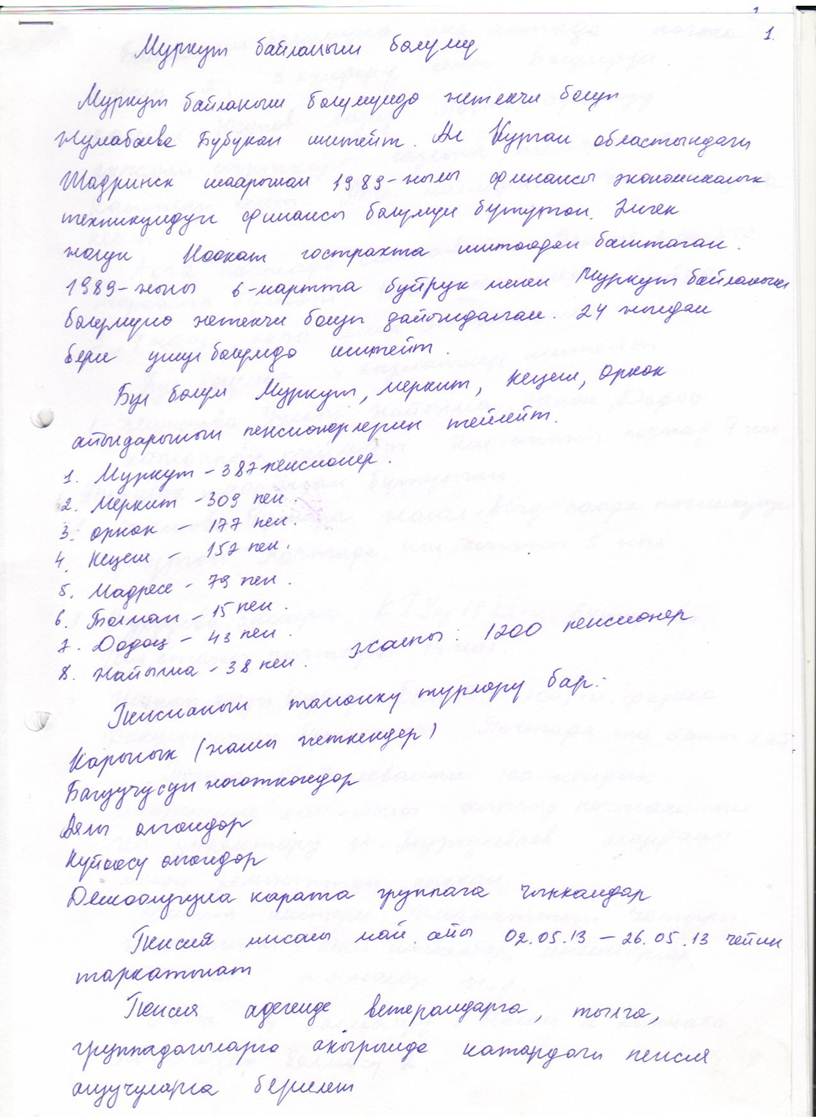 1.
Муркут байланыш бөлүмү
Муркут байланыш бөлүмүндө жетекчи болуп
Жумабаева Бубукан иштейт. Ал Курган областындагы
Шадринск шаарынан 1989-жылы финансы экономикалык
техникумдун финансы бөлүмүн бүтүргөн. Эмгек
жолун Ноокат гострахта иштөөдөн баштаган.
1989-жылы 6-мартта буйрук менен Муркут байланыш
бөлүмүнө жетекчи болуп дайындалган. 24 жылдан
бери ушул бөлүмдө иштейт.
Бул бөлүм Муркут, меркит, Кеңеш, Орнок
айылдарынын пенсионерлерин тейлейт.
1. Муркут - 387 пенсионер.
2. Меркит - 309 пен.
3. Орнок - 177 пен.
4. Кеңеш - 157 пен.
5. Мадресе - 79 пен.
6. - 15 пен.
7. Додоң - 43 пен.
8. Найыма - 38 пен. Жалпы: 1200 пенсионер
Пенсианын төмөнкү түрлөрү бар:
Карылык (жашы жеткендер)
Багуучусун жоготкондор
Үлүш алгандар
Күйөөсү өлгөндөр
Ден соолугуна карата группага чыккандар
Пенсия мисалы май айы 02.05.13 - 26.05.13 чейин
таркатылат
Пенсия адегенде ветерандарга, тылга,
группадагыларга акырында катардагы пенсия
алуучуларга берилет